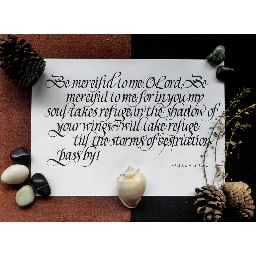 Be merciful to me O Lord, Be
merciful to me, for in you my
soul takes refuge in the shadow of
your wings. I will take refuge
till the storms of destruction
pass by!